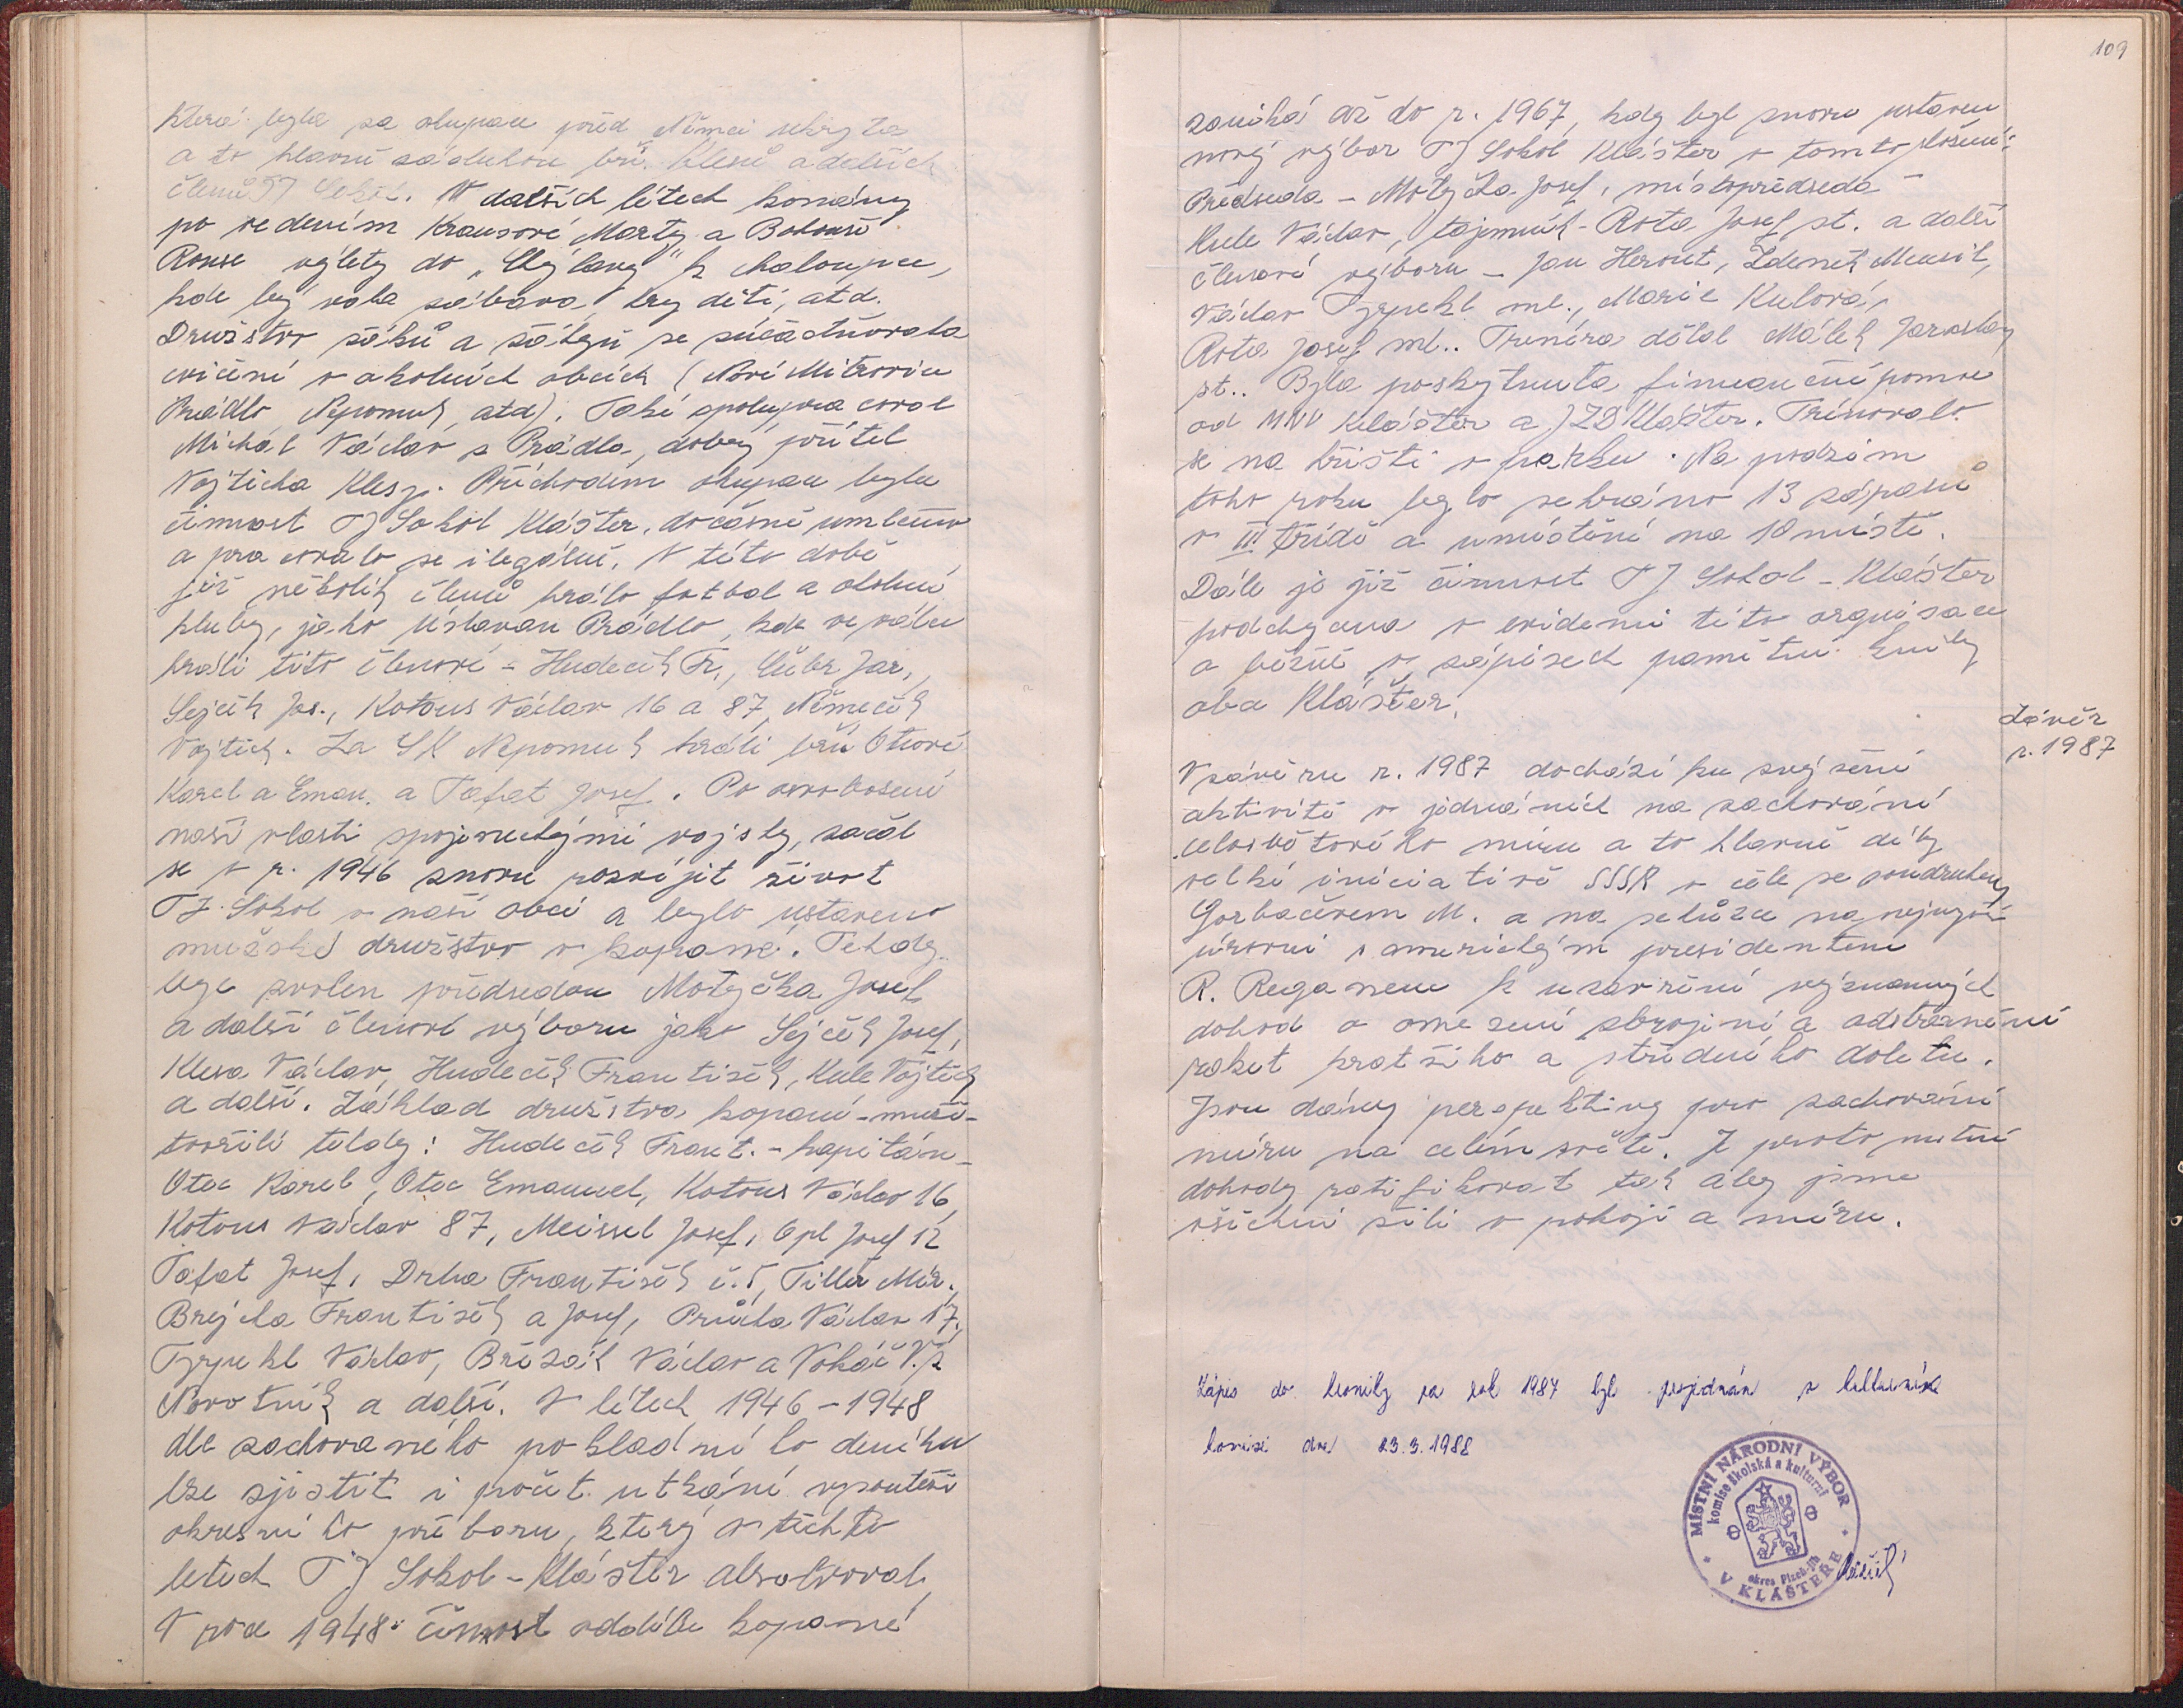 která byla za okupace před Němci ukryta
a to hlavně zásluhou bří. Klesů a dalších
členů TJ Sokol. V dalších létech konány
po vedením Krausové Marty a Bohouše
Rouse výlety do „Chýlavy" k chaloupce,
kde byvala zábava, hry dětí, atd.
Družstvo žáků a žákyň se zúčastňovala
cvičení v okolních obcích (Nové Mitrovice
Prádlo Nepomuk, atd). Také spolupracoval
Michal Václav z Prádla, dobrý přítel
Vojtěcha Klesy. Příchodem okupace byla
činnost TJ Sokol Klášter, dočasně umlčeno
a pracovalo se ilegálně. V této době
již několik členů hrálo fotbal a okolní
kluby, jako Úslavan Prádlo, kde ve válce
hráli tito členové - Hudeček Fr., Jar.,
Sejček Jos., Kotous Václav 16 a 87, Němeček
Vojtěch. Za SK Nepomuk hráli bří Otcové
Karel a Eman. a Tafat Josef. Po osvobození
naší vlasti spojeneckými vojsky, začal
se v r. 1946 znovu rozvíjet život
TJ. Sokol v naší obci a bylo ustaveno
mužské družstvo v kopané. Tehdy
byl zvolen předsedou Motyčka Josef
a další členové výboru jako Sejček Josef,
Klesa Václav, Hudeček František, Kule Vojtěch
a další. Základ družstva kopané - muži -
tvořili tehdy: Hudeček Frant. - kapitán -
Otec Karel, Otec Emanuel, Kotous Václav 16,
Kotous Václav 87, Meissel Josef, Opl Josef 12
Tafat Josef, Drha František č. 5, Tiller Mir.,
Brejcha František a Josef, Průcha Václav 17,
Tyrpekl Václav, Břízák Václav a Vokáč V. z
Novotník a další. V létech 1946 - 1948
dle zachovaného pokladního deníku
lze zjistit i počet utkání v soutěži
okresního přeboru, který v těchto
letech TJ Sokol - Klášter absolvoval.
V roce 1948 činnost oddílu kopané
109
zaniká až do r. 1967, kdy byl znovu ustaven
nový výbor TJ Sokol Klášter v tomto složení:
Předseda - Motyčka Josef, místopředseda -
Kule Václav, tajemník - Rota Josef st. a další
členové výboru - Jan Herout, Zdeněk Mensík,
Václav Tyrpekl ml., Marie Kulová,
Rota Josef ml.. Trenéra dělal Málek Jaroslav
st.. Byla poskytnuta finanční pomoc
od MNV Klášter a JZD Klášter. Trénovalo
se na hřišti v parku. Na podzim
toho roku bylo sehráno 13 zápasů
v III třídě a umístění na 10 místě.
Dále je již činnost TJ Sokol - Klášter
podchycena v evidenci této organisace
a běžně v zápisech pamětní knihy
obce Klášter.
Závěr
r. 1987
V závěru r. 1987 dochází ku zvýšení
aktivitě v jednáních na zachování
celosvětového míru a to hlavně díky
velké iniciativě SSSR v čele se soudruhem
Gorbačovem M. a na schůzce na nejvyšší
úrovni s americkým presidentem
R. Reganem k uzavření významných
dohod o omezení zbrojení a odstranění
raket kratšího a středního doletu.
Jsou dány perspektivy pro zachování
míru na celém světě. Je proto nutné
dohody ratifikovat tak aby jsme
všichni žili v pokoji a míru.
Zápis do kroniky za rok 1987 byl projednán v kulturní
komisi dne 23.3.1988
MÍSTNÍ NÁRODNÍ VÝBOR
komise školská a kulturní
okres Plzeň-jih
V KLÁŠTEŘE